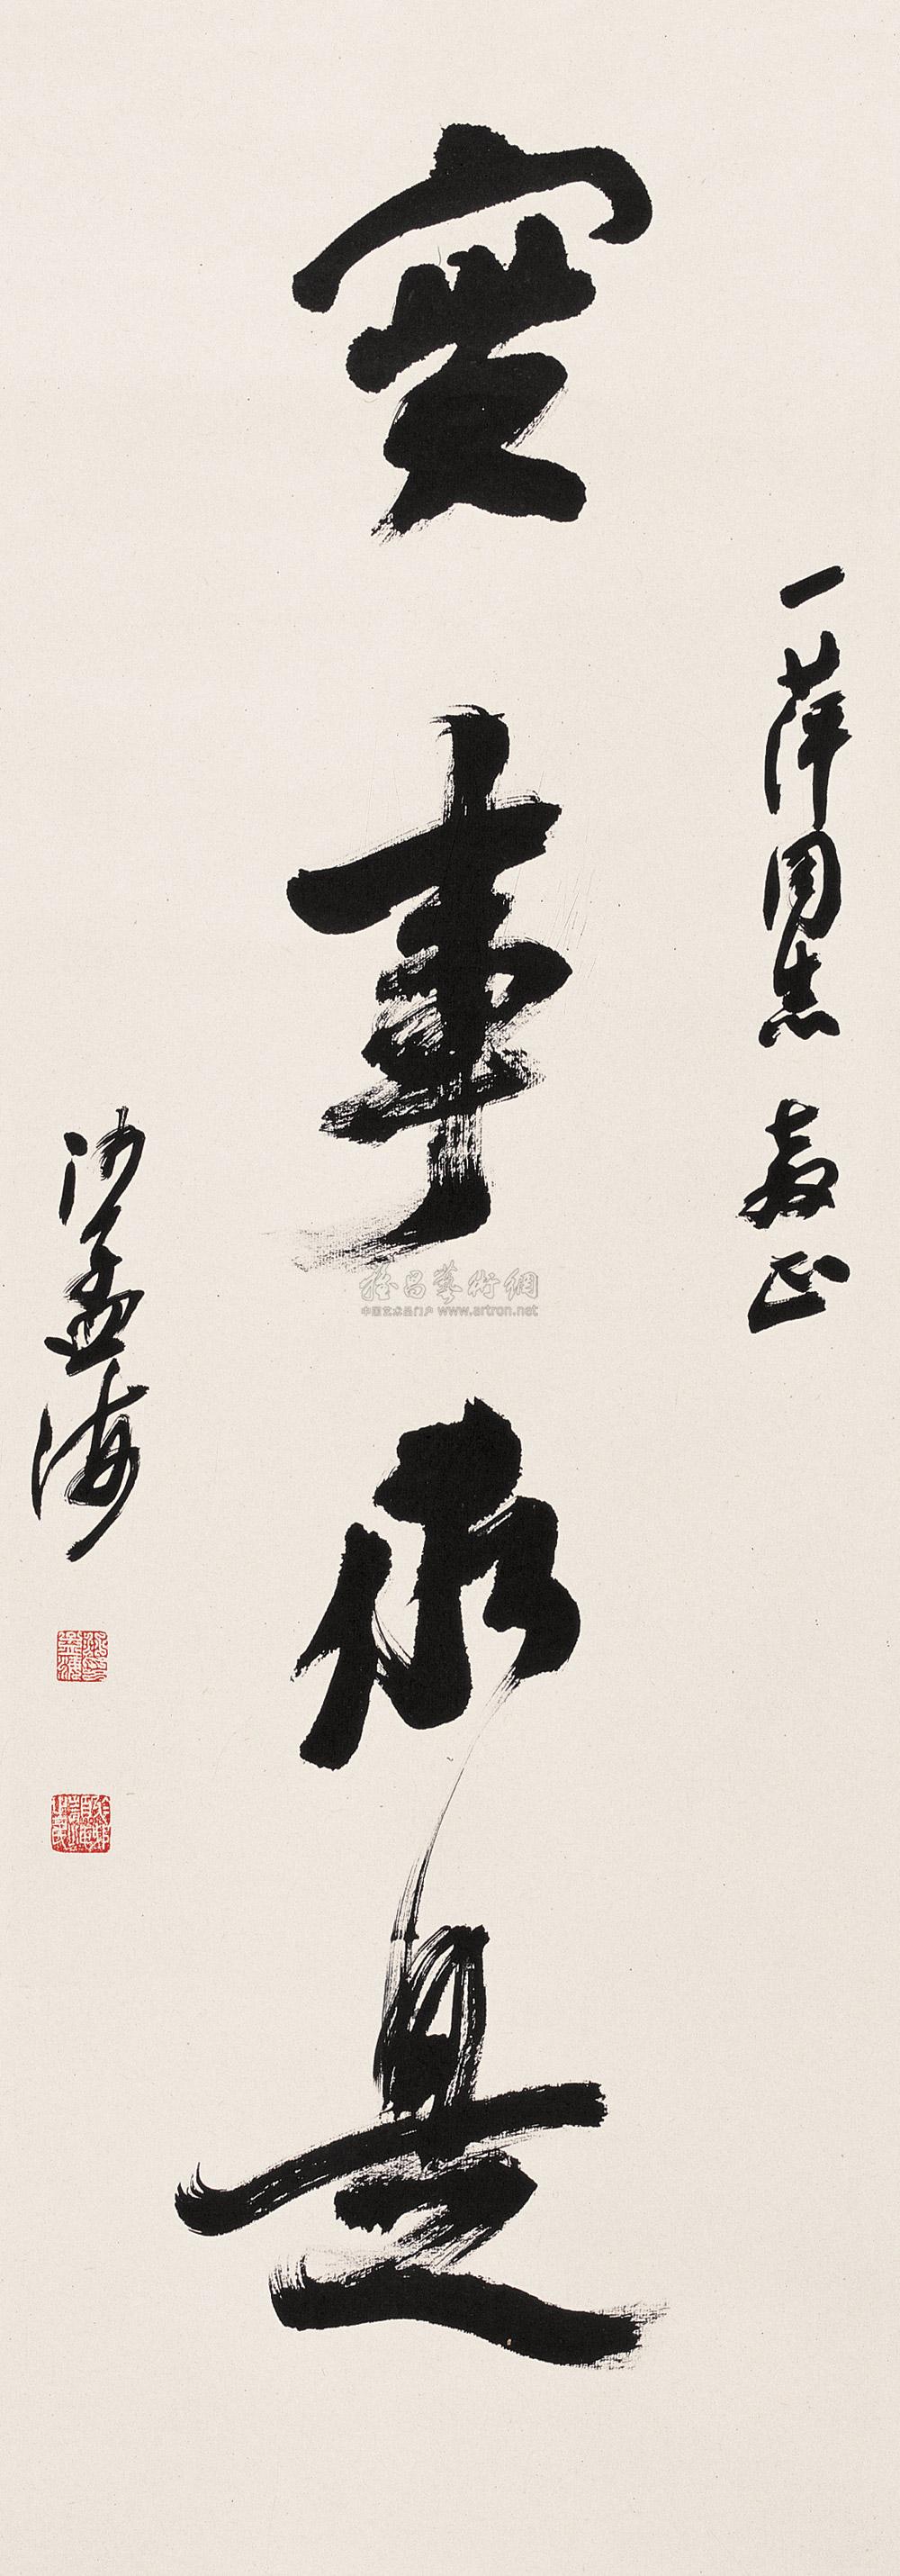 一萍同志教正
實事求是
沙孟海
雅昌藝術網
中国艺术品门户 www.artron.net